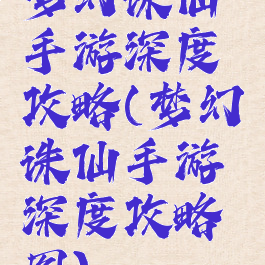 梦幻诛仙
手游深度
攻略(梦幻
诛仙手游
深度攻略
图)